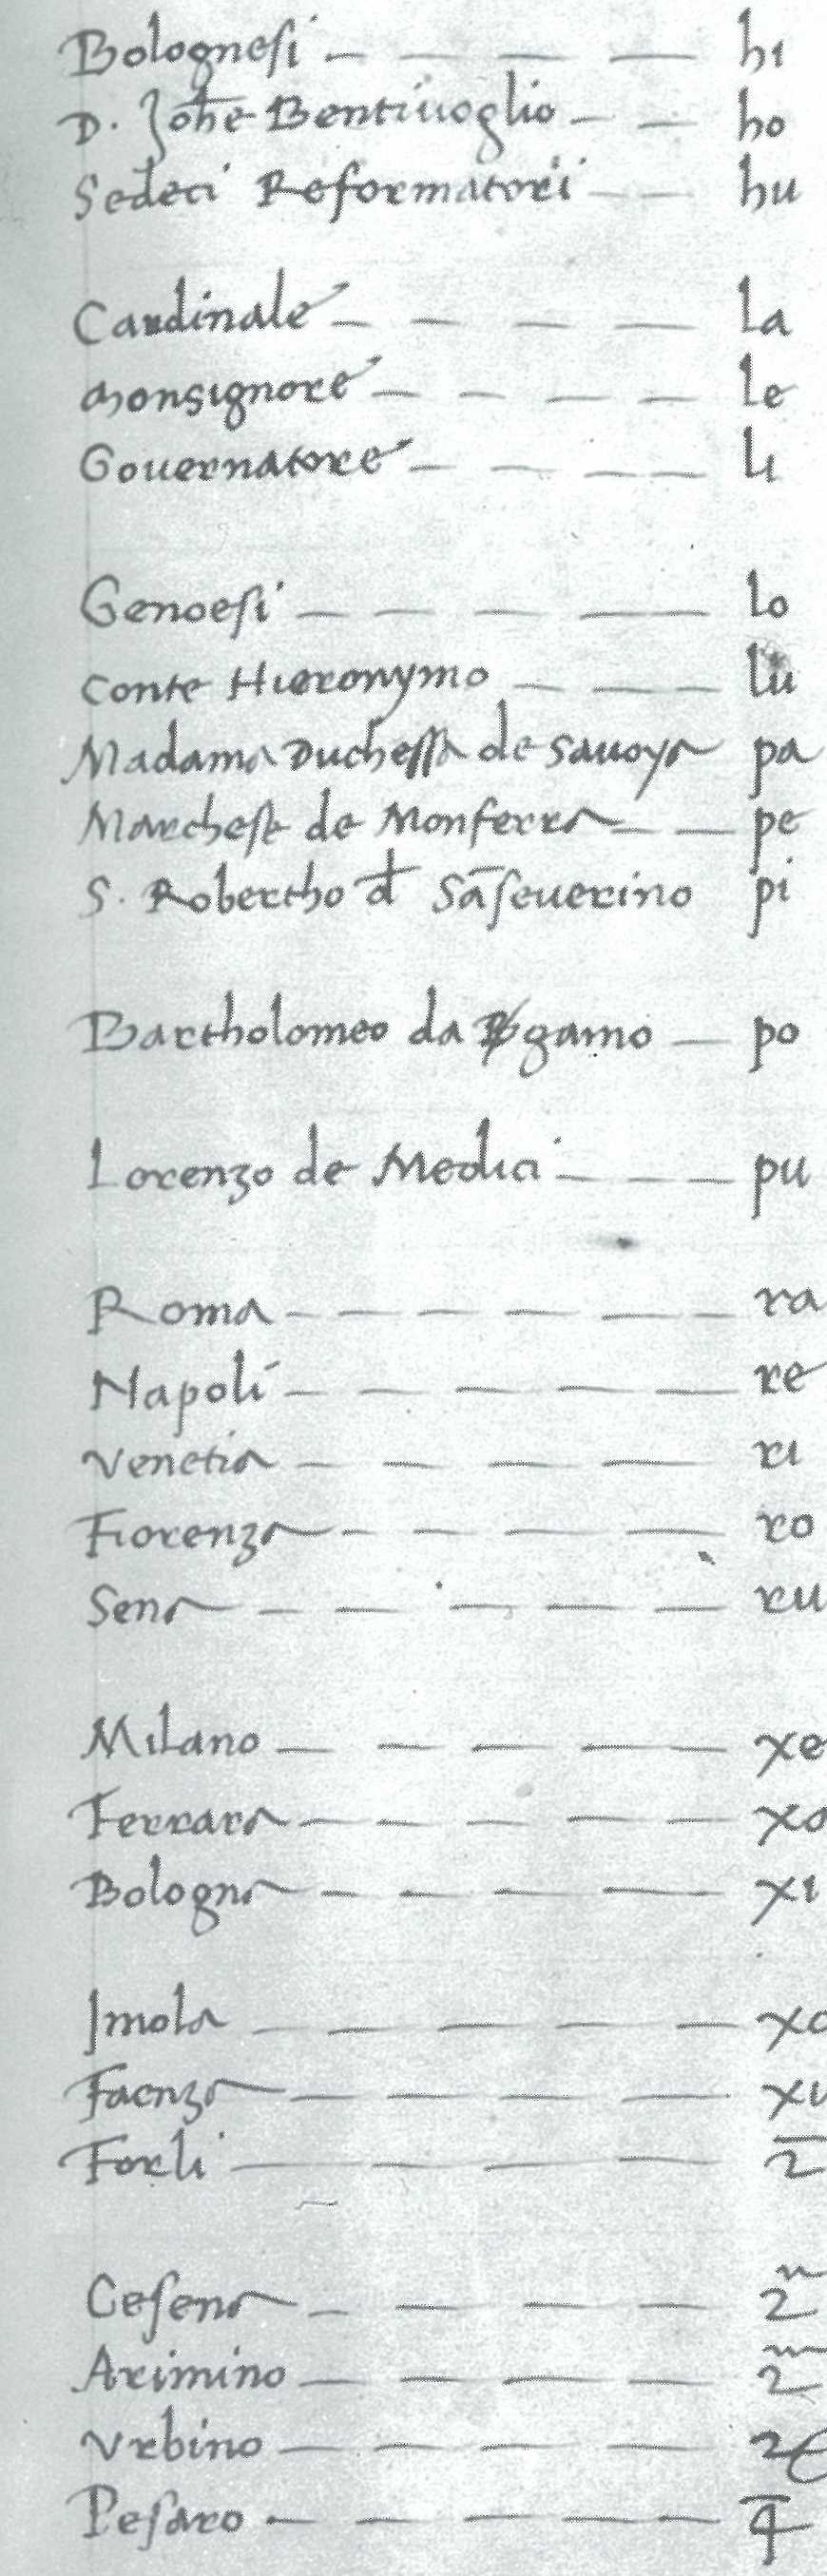 Bolognesi — — — — hi
D. Johē Bentiuoglio — — ho
Sedeci Reformatori — — hu
Cardinale — — — — la
Monsignore — — — — le
Gouernatore — — — — li
Genoesi — — — — lo
Conte Hieronymo — — — lu
Madama Duchessa de Sauoya pa
Marchese de Monferra — — pe
S. Robertho d Sāseuerino pi
Bartholomeo da Bgamo — po
Lorenzo de Medici — — — pu
Roma — — — — — — ra
Napoli — — — — — re
Venetia — — — — — ri
Fiorenza — — — — ro
Sena — — — — — ru
Milano — — — — — xe
Ferrara — — — — — xa
Bologna — — — — — xi
Imola — — — — — xo
Faenza — — — — — xu
Forli — — — — 2̅
Cesena — — — — 2
Arimino — — — — 2
Vrbino — — — — 2
Pesaro — — — — — 4̅